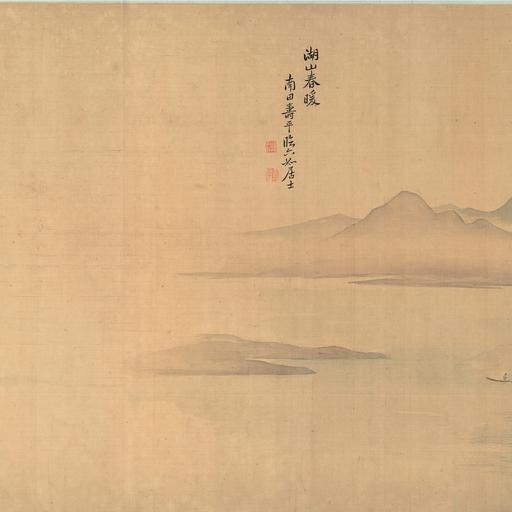 湖山春暖
南田壽平臨六如居士